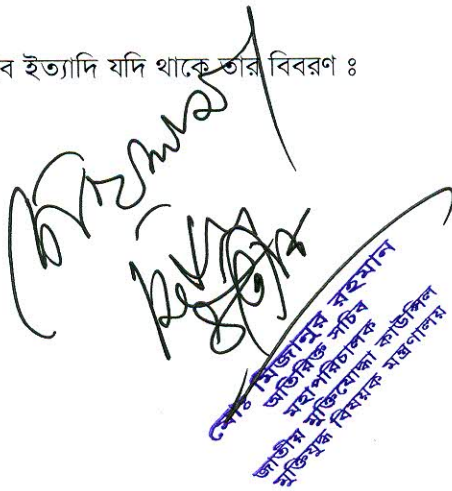 ব ইত্যাদি যদি থাকে তার বিবরণ ঃ
মোঃ মিজানুর রহমান
অতিরিক্ত সচিব
মহাপরিচালক
জাতীয় মুক্তিযোদ্ধা কাউন্সিল
মুক্তিযুদ্ধ বিষয়ক মন্ত্রণালয়